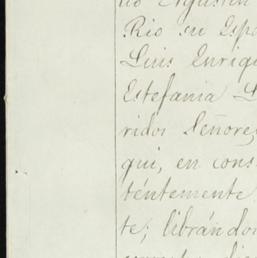 do Agustin
Rio su Espo
Luis Enriqu
Estefania L
ridos Señore
qui, en cons
téntemente
te; librándo